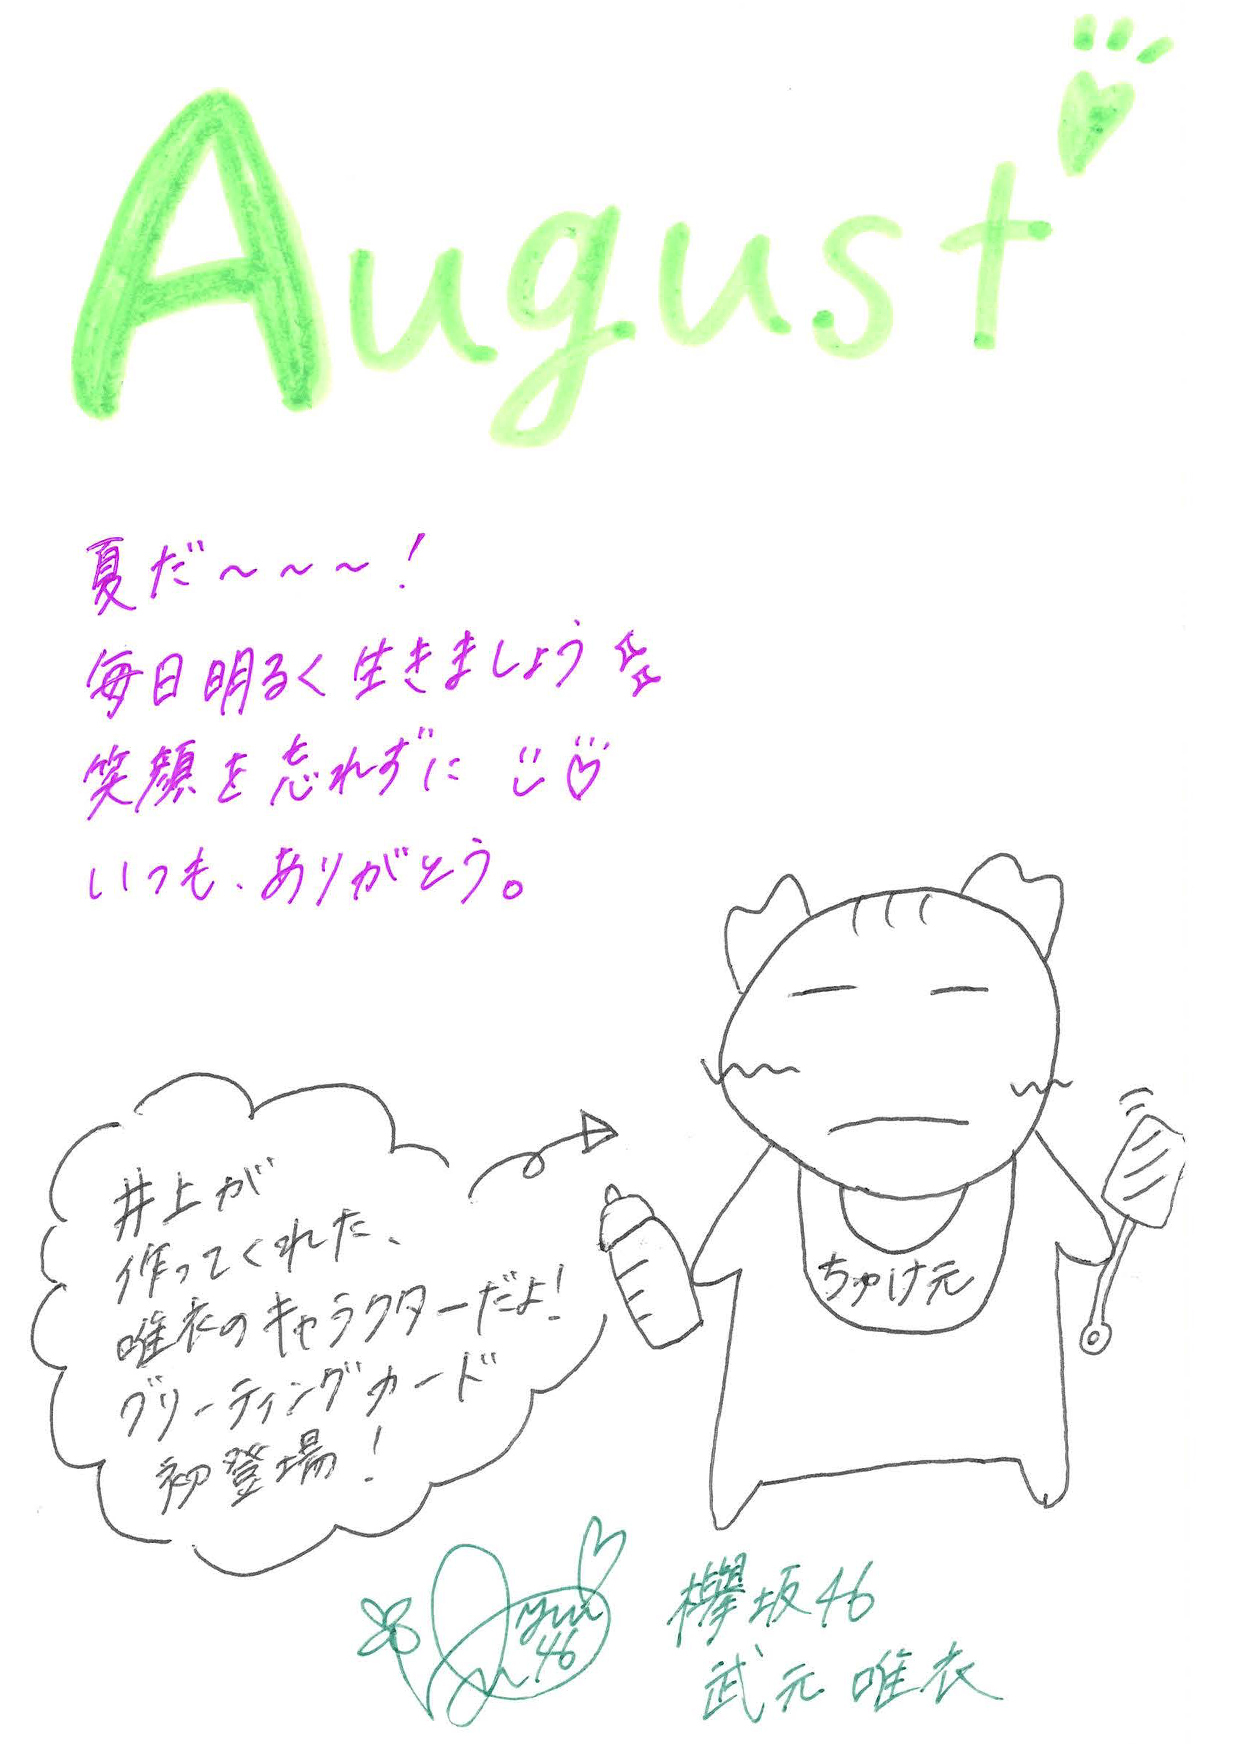 August
夏だ〜〜〜！
毎日明るく生きましょう
笑顔を忘れずに
いつも、ありがとう。
井上が
作ってくれた、
唯衣のキャラクターだよ！
グリーティングカード
初登場！
ちゅけ元
yui
46
欅坂46
武元唯衣